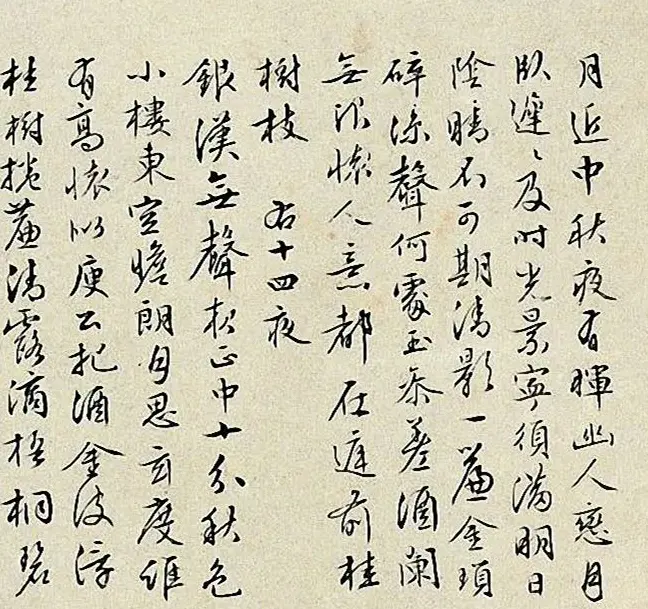 月近中秋夜有暉幽人戀月
臥遲〻及时光景寧須滿明日
陰晴不可期清影一簾金瑣
碎涼聲何處玉參差酒闌
無限懷人意都在庭前桂
樹枝 右十四夜
銀漢無聲正中十分秋色
小樓東空瞻朗月思玄度誰
有高懷似庾公把酒金波浮
桂樹捲簾清露滴梧桐碧